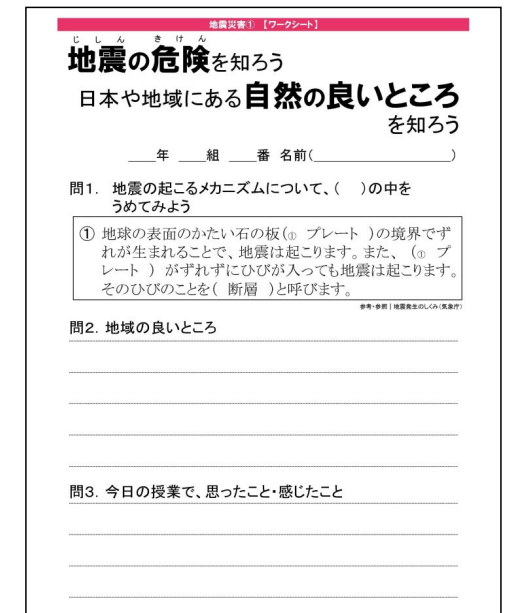 地震災害① 【ワークシート】
じしん きけん
地震の危険を知ろう
日本や地域にある自然の良いところ
を知ろう
____年 ____組 ____番 名前(____________________)
問1. 地震の起こるメカニズムについて、( )の中を
うめてみよう
① 地球の表面のかたい石の板(① プレート )の境界でず
れが生まれることで、地震は起こります。また、 (① プ
レート ) がずれずにひびが入っても地震は起こります。
そのひびのことを( 断層 )と呼びます。
参考・参照|地震発生のしくみ(気象庁)
問2. 地域の良いところ
問3. 今日の授業で、思ったこと・感じたこと